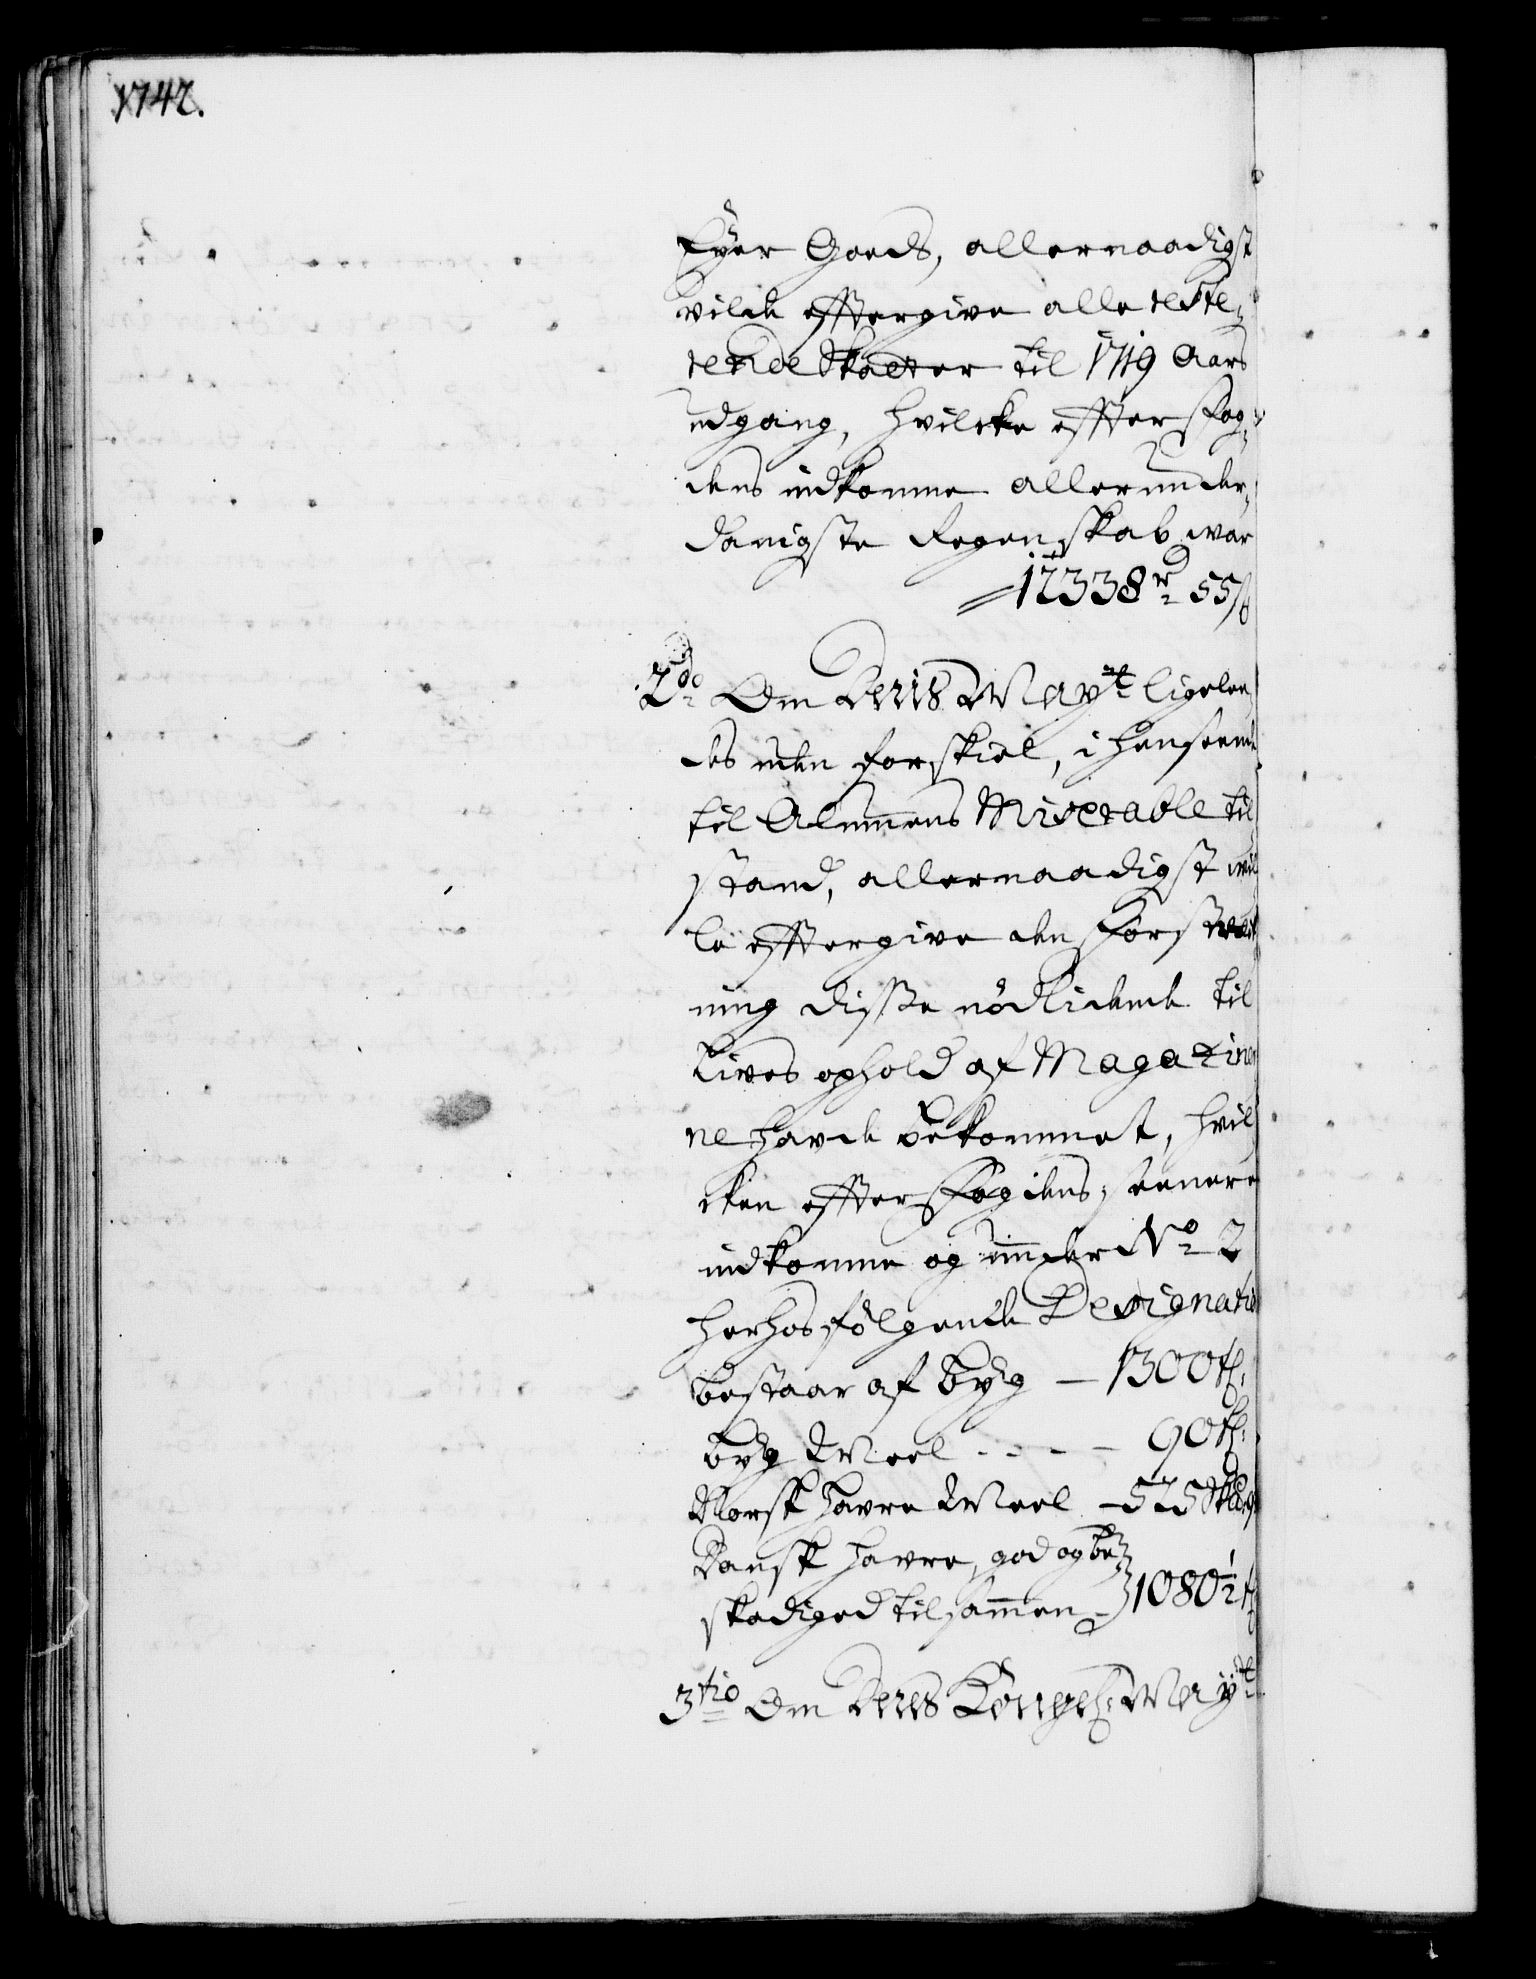 1742.
Eyer Goeds, allernaadigst
vilde eftergive alle reste-
rende Skatter til 1719 Aars
udgang, hvilcke efter Fog-
dens indkomne allerunder-
danigste Regenskab war
12338 rd 55 s
2do Om Deris Mayt ligelee
des uden forskiel, i henseende
til Almuens Miserable til
stand, allernaadigst wil
le eftergive den Forstrek
ning disse nødlidende til
Lives ophold af Magazine
ne havde bekommet, hvil
cken efter Fogdens, seenere
indkomne og under No 2
herhos følgende Designatio
bestaar af byg — 1300 t.
byg Meel - - - - 90 t.
Norsk havre Meel — 575
Dansk havre, god og be
skadiged tilsammen 1080½ t
3tio Om Deris Kongel: Mayt